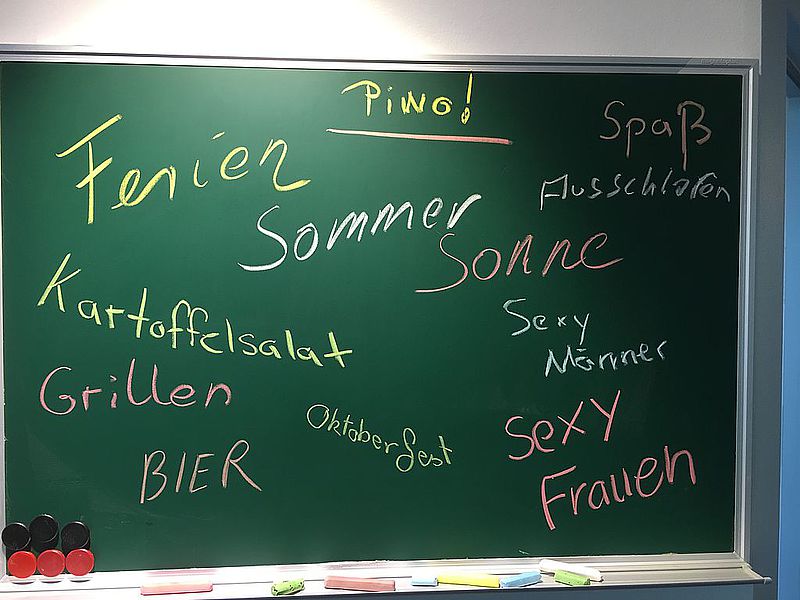 PiWO!
Spaß
Ferien
Ausschlafen
Sommer
Sonne
Kartoffelsalat
Sexy
Männer
Grillen
Oktoberfest
Sexy
Frauen
BIER